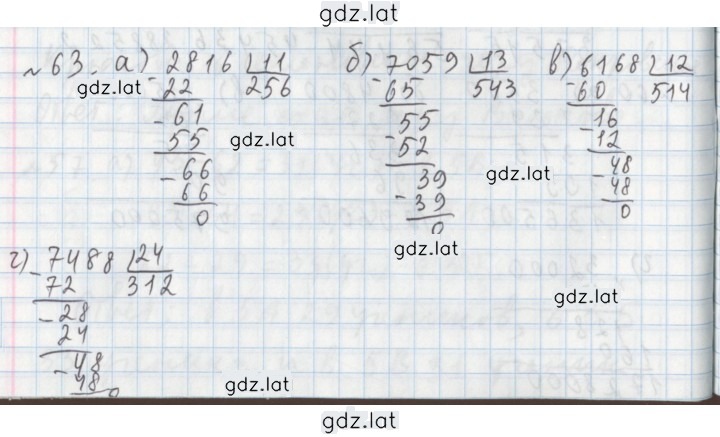 gdz.lat
№ 63. а) 2816 | 11
- 22 256
- 61
55
- 66
66
0
б) 7059 | 13
- 65 543
55
- 52
39
- 39
0
в) 6168 | 12
- 60 514
16
- 12
48
- 48
0
г) 7488 | 24
- 72 312
- 28
24
- 48
48
0
gdz.lat
gdz.lat
gdz.lat
gdz.lat
gdz.lat
gdz.lat
gdz.lat